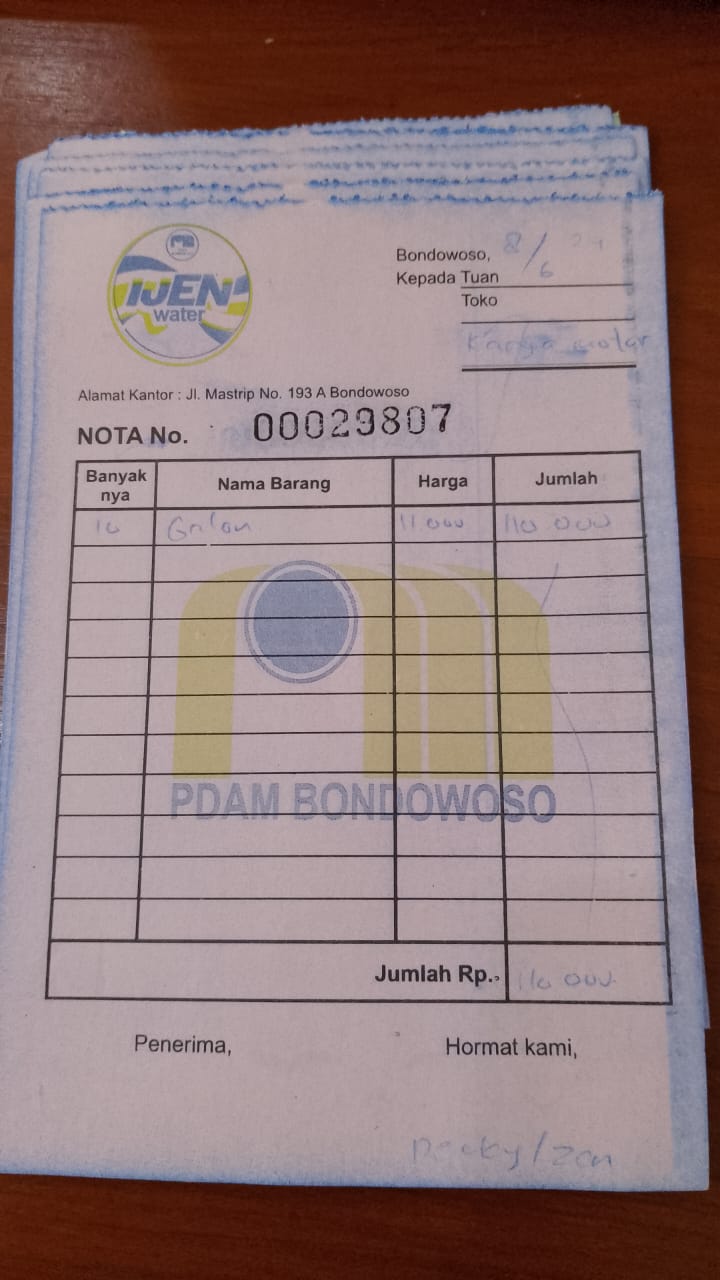 IJEN
water
Bondowoso, 8/6 24
Kepada Tuan
Toko
Karya motor
Alamat Kantor : Jl. Mastrip No. 193 A Bondowoso
NOTA No. 00029807
Banyak nya Nama Barang Harga Jumlah
10 Galon 11.000 110 000
PDAM BONDOWOSO
Jumlah Rp. 110 000
Penerima, Hormat kami,